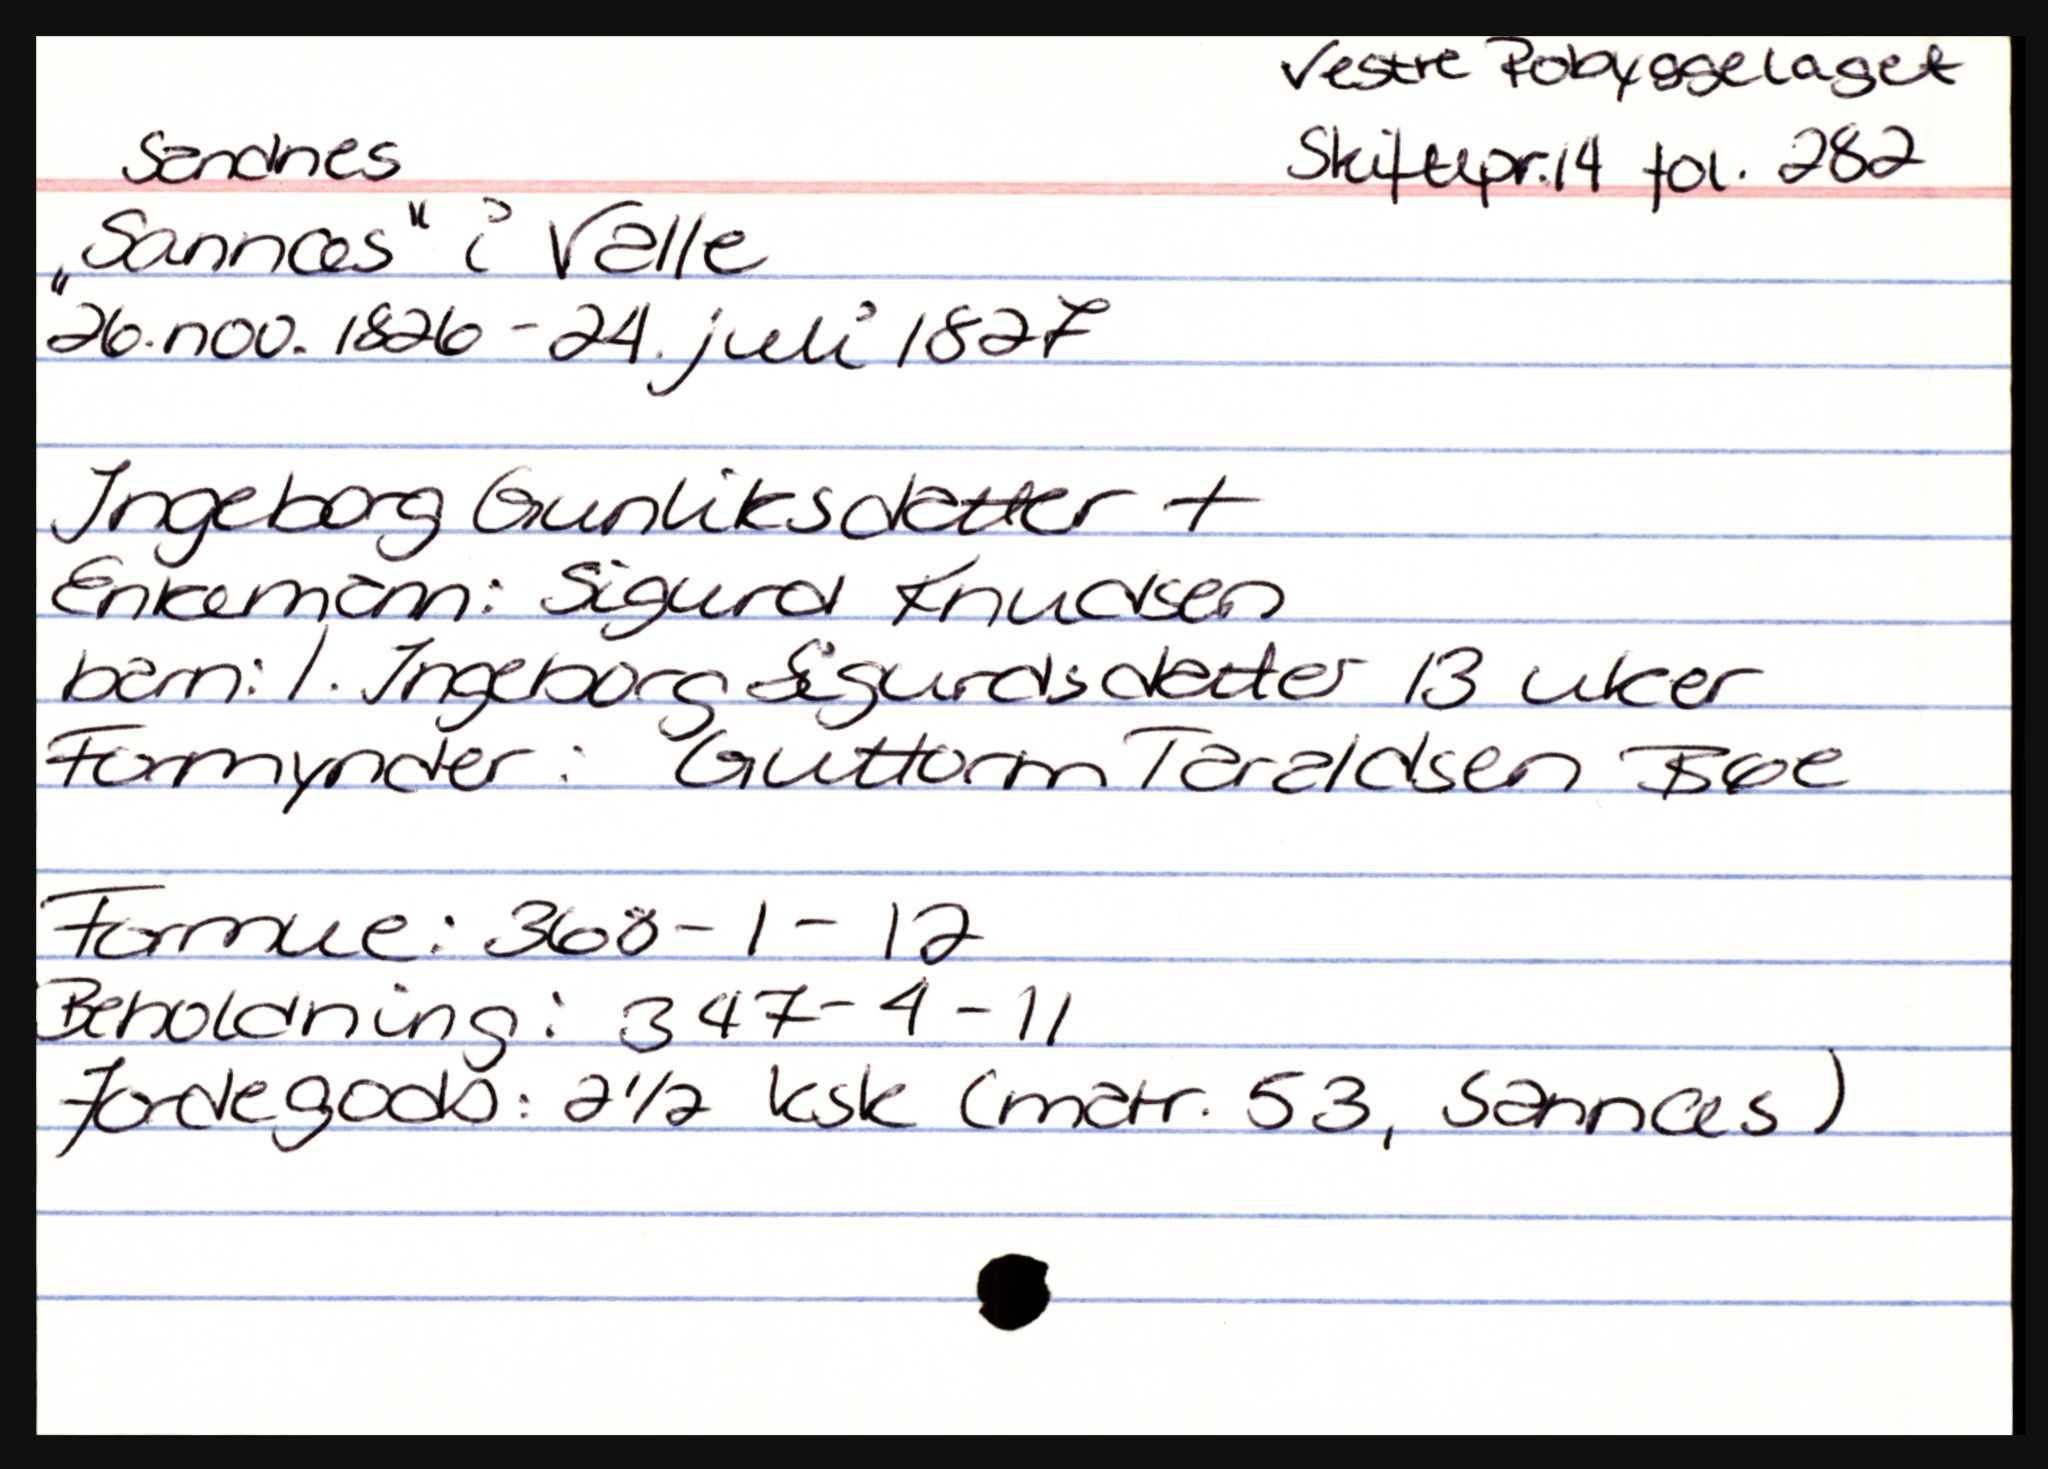 Vestre Robyggelaget
Sandnes
Skiftepr. 14 fol. 282
"Sannæs" i Valle
26. nov. 1826 - 24. juli 1827
Ingeborg Gunliksdatter +
Enkemann: Sigurd Knudsen
barn: 1. Ingeborg Sigurdsdatter 13 uker
Formynder: Guttorm Taraldsen Bøe
Formue: 368 - 1 - 12
Beholdning: 347 - 4 - 11
Jordegods: 2 1/2 ksk (matr. 53, Sannæs)